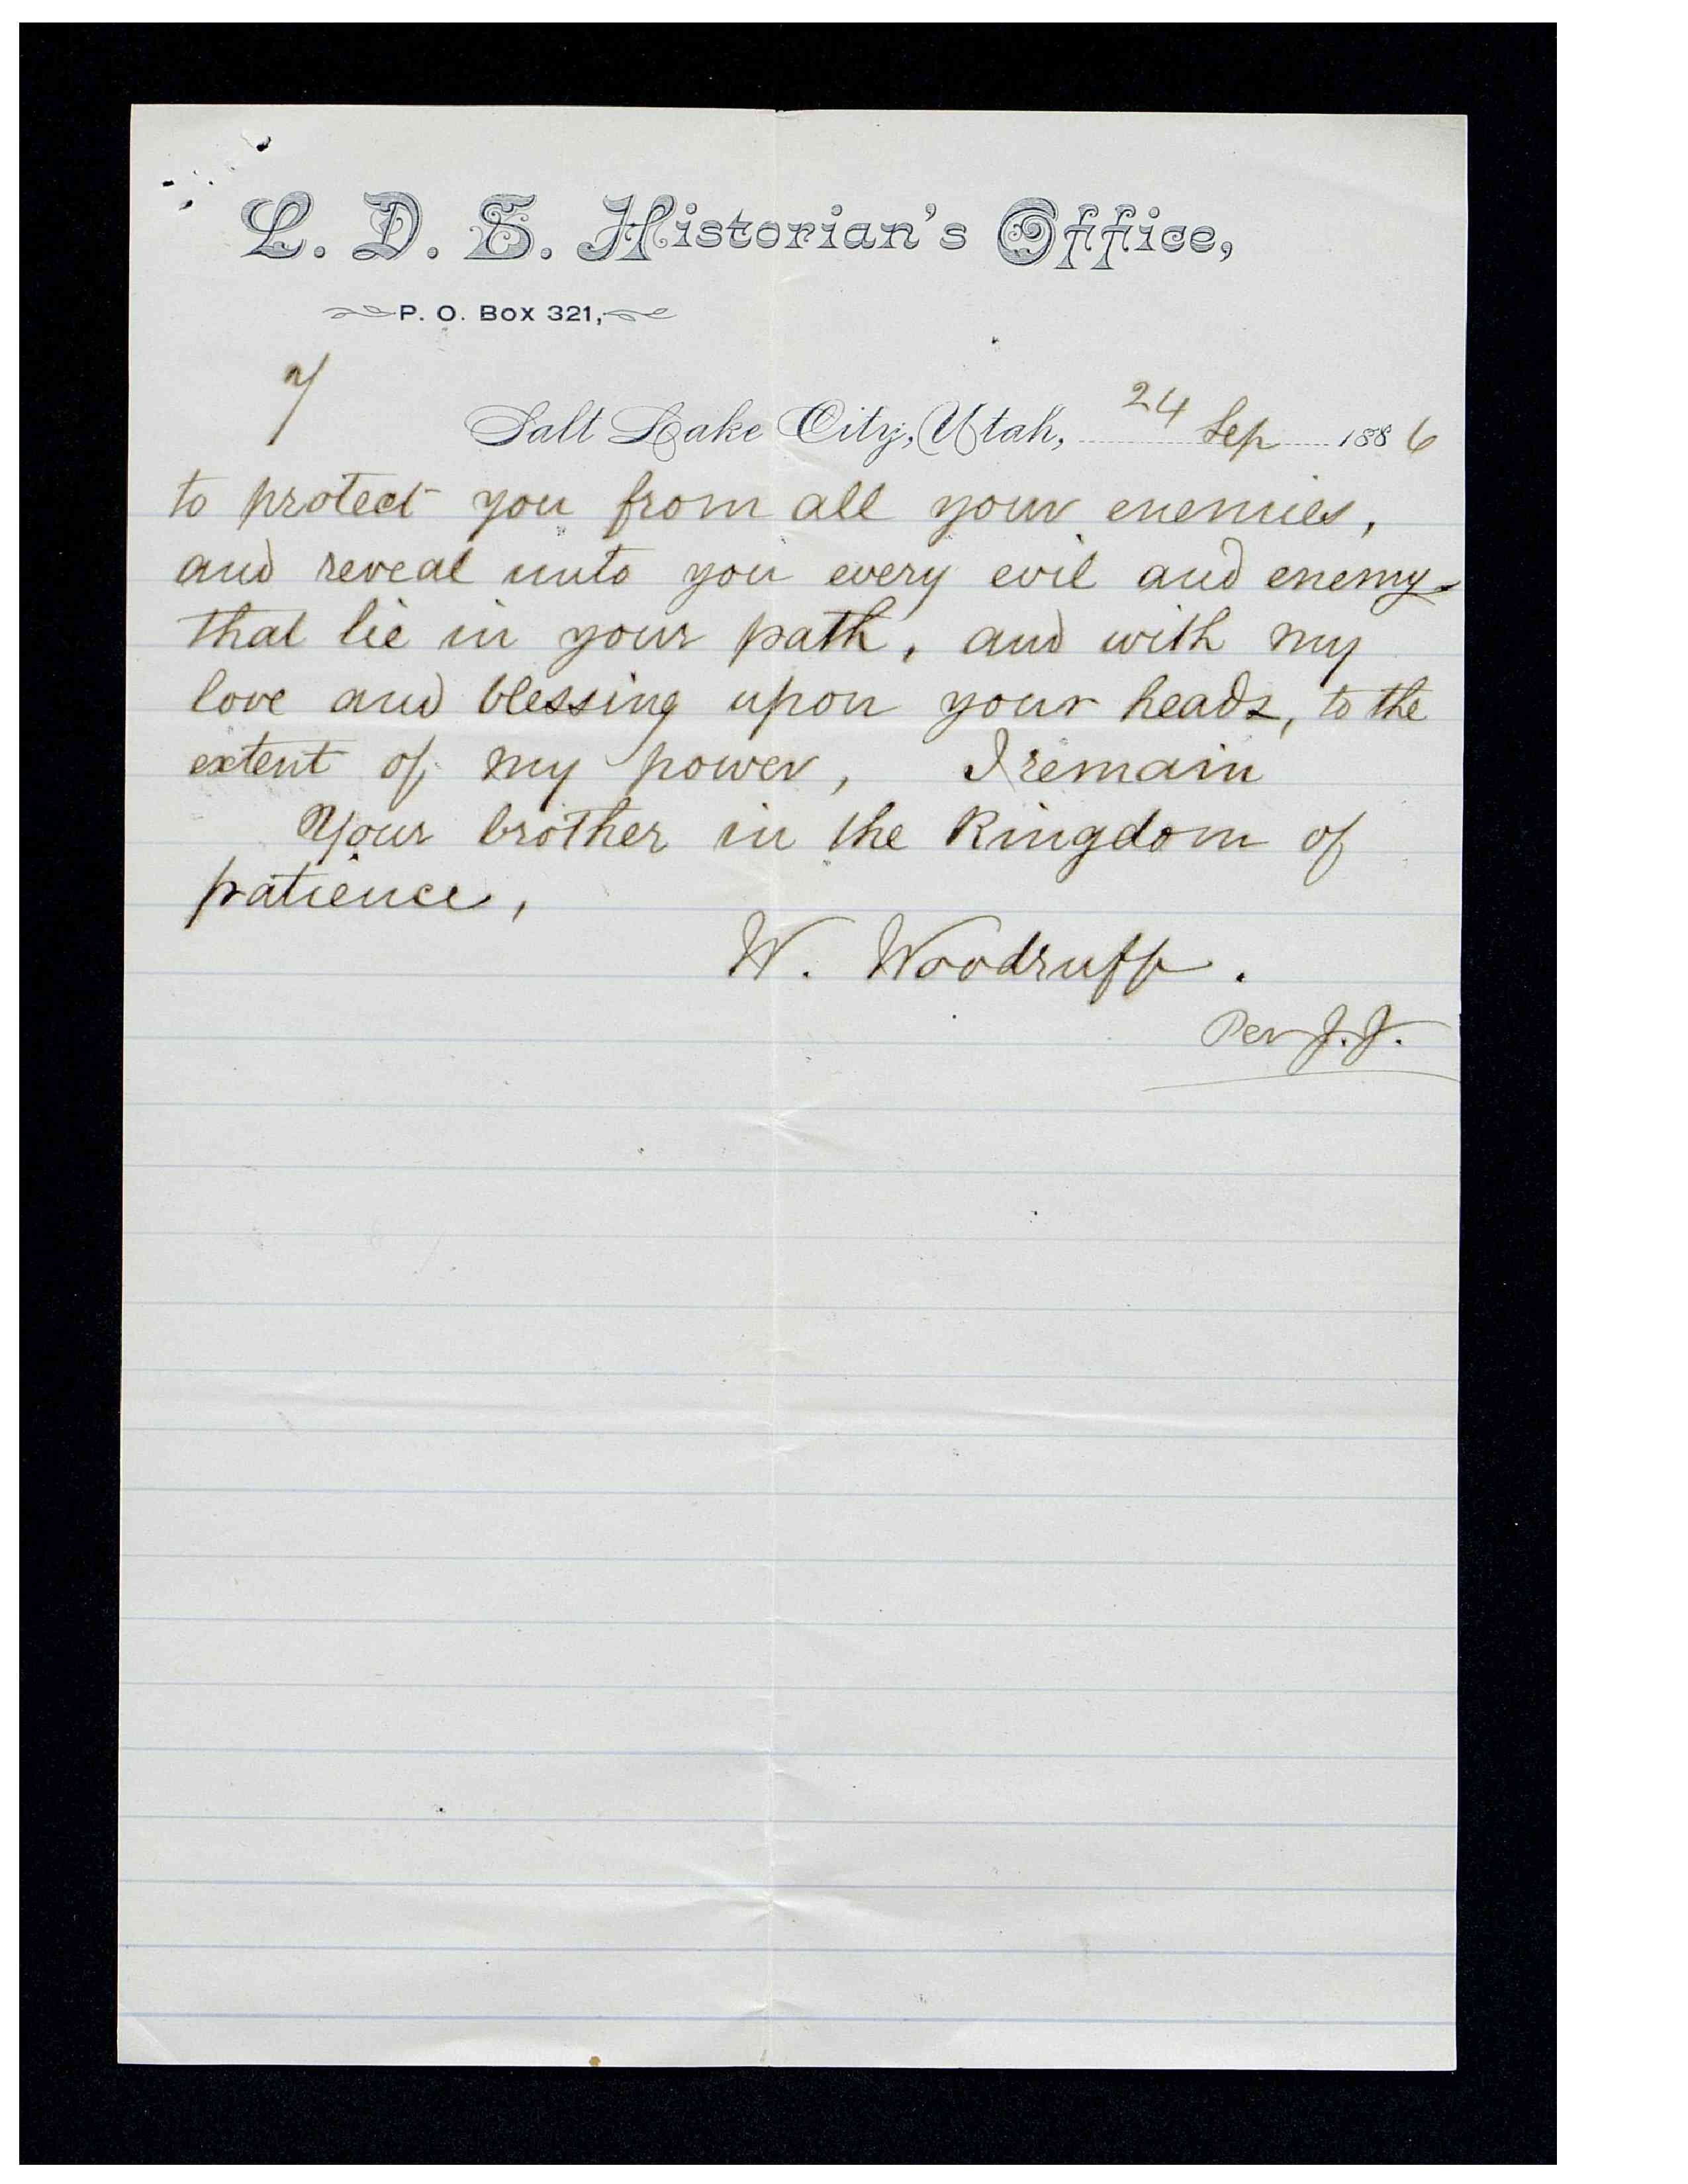 L. D. S. Historian's Office,
P. O. Box 321,
7
Salt Lake City, Utah, 24 Sep 1886
to protect you from all your enemies,
and reveal unto you every evil and enemy
that lie in your path, and with my
love and blessing upon your heads, to the
extent of my power, I remain
Your brother in the Kingdom of
patience,
W. Woodruff.
Per J.J.